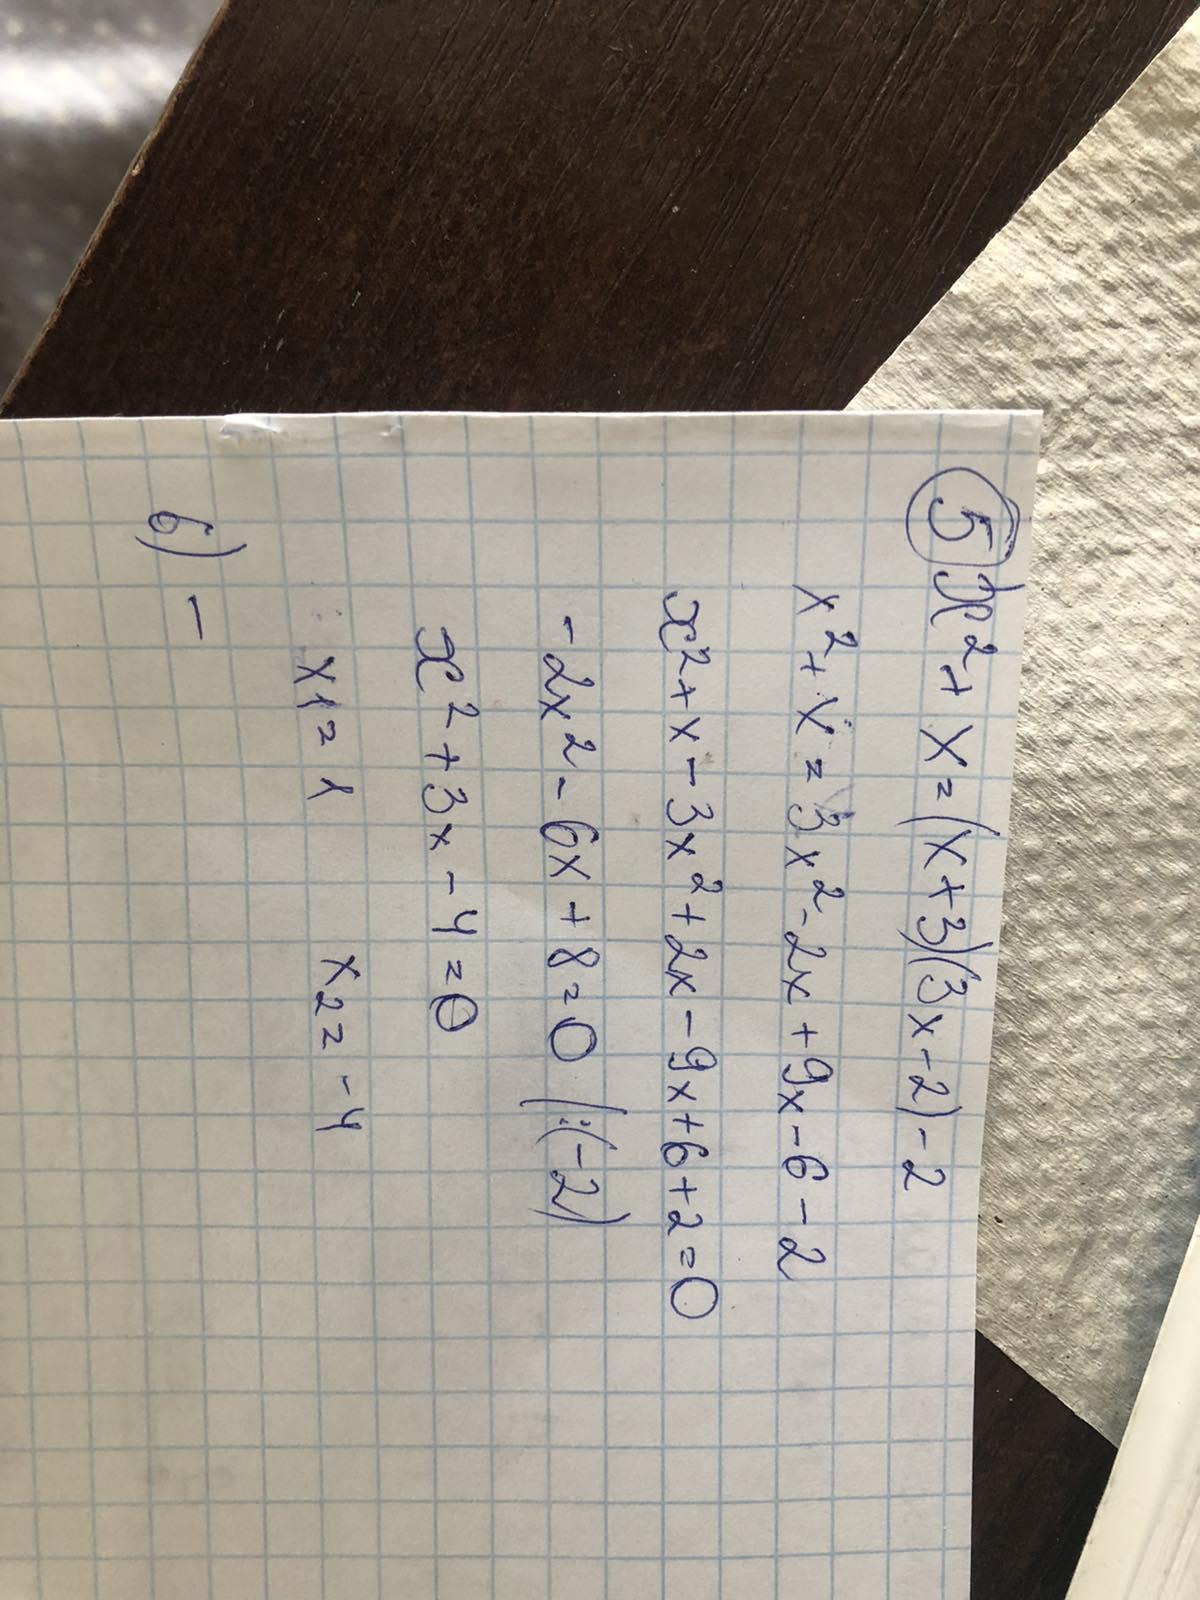 5) x² + x = (x+3)(3x-2)-2
x² + x = 3x² - 2x + 9x - 6 - 2
x² + x - 3x² + 2x - 9x + 6 + 2 = 0
-2x² - 6x + 8 = 0 |:(-2)
x² + 3x - 4 = 0
x1 = 1 x2 = -4
6) -